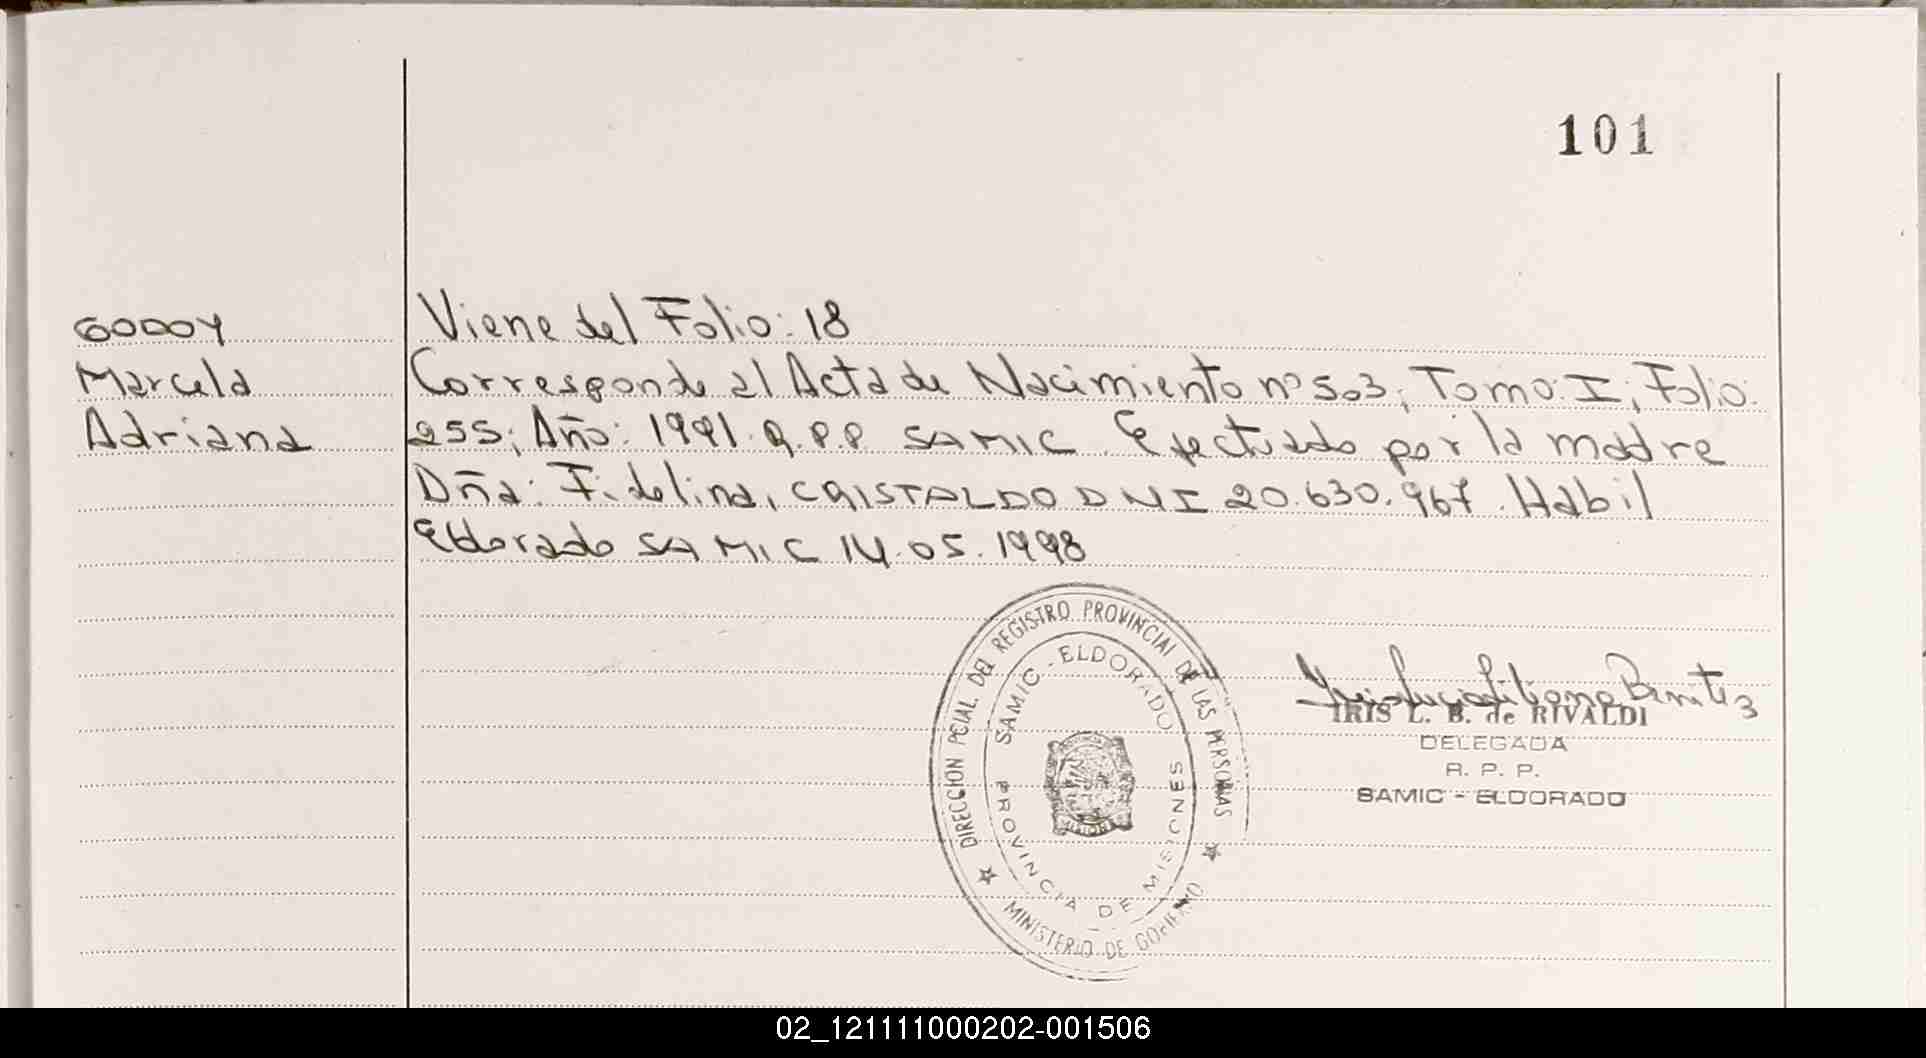 101
GODOY
Marcela
Adriana
Viene del Folio: 18
Corresponde al Acta de Nacimiento nº 503; Tomo: I; Folio:
255; Año: 1991. R.P.P. SAMIC. Efectuado por la madre
Dña: Fidelina, CRISTALDO DNI 20.630.967. Habil
Eldorado SAMIC 14.05.1998
DIRECCION PCIAL. DEL REGISTRO PROVINCIAL DE LAS PERSONAS
MINISTERIO DE GOBIERNO
SAMIC - ELDORADO
PROVINCIA DE MISIONES
MISIONES
Benitez
IRIS L. B. de RIVALDI
DELEGADA
R. P. P.
SAMIC - ELDORADO
02_121111000202-001506